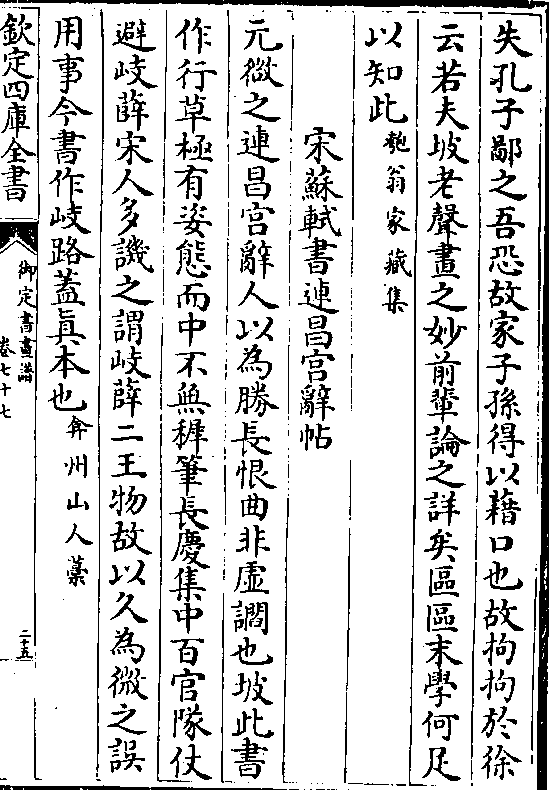 失孔子鄙之吾恐故家子孫得以藉口也故拘拘於徐
云若夫坡老聲畫之妙前輩論之詳矣區區末學何足
以知此匏翁家藏集
宋蘇軾書連昌宫辭帖
元微之連昌宫辭人以為勝長恨曲非虛讕也坡此書
作行草極有姿態而中不無穉筆長慶集中百官隊仗
避岐薛宋人多譏之謂岐薛二王物故以久為微之誤
用事今書作岐路蓋真本也弇州山人藁
欽定四庫全書
御定書畫譜
卷七十七
二十五